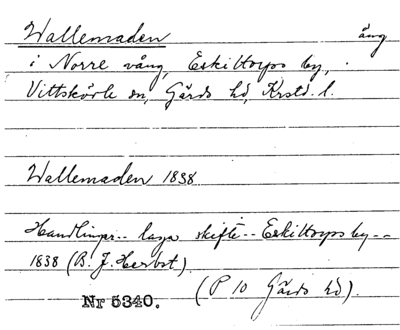 Wallemaden äng
i Norre vång, Eskiltorps by,
Vittskövle sn, Gärds hd, Krstd. l.
Wallemaden 1838
Handlingar-- laga skifte-- Eskiltorps by--
1838 (B. J. Herbst).
(P 10 Gärds hd).
Nr 5340.